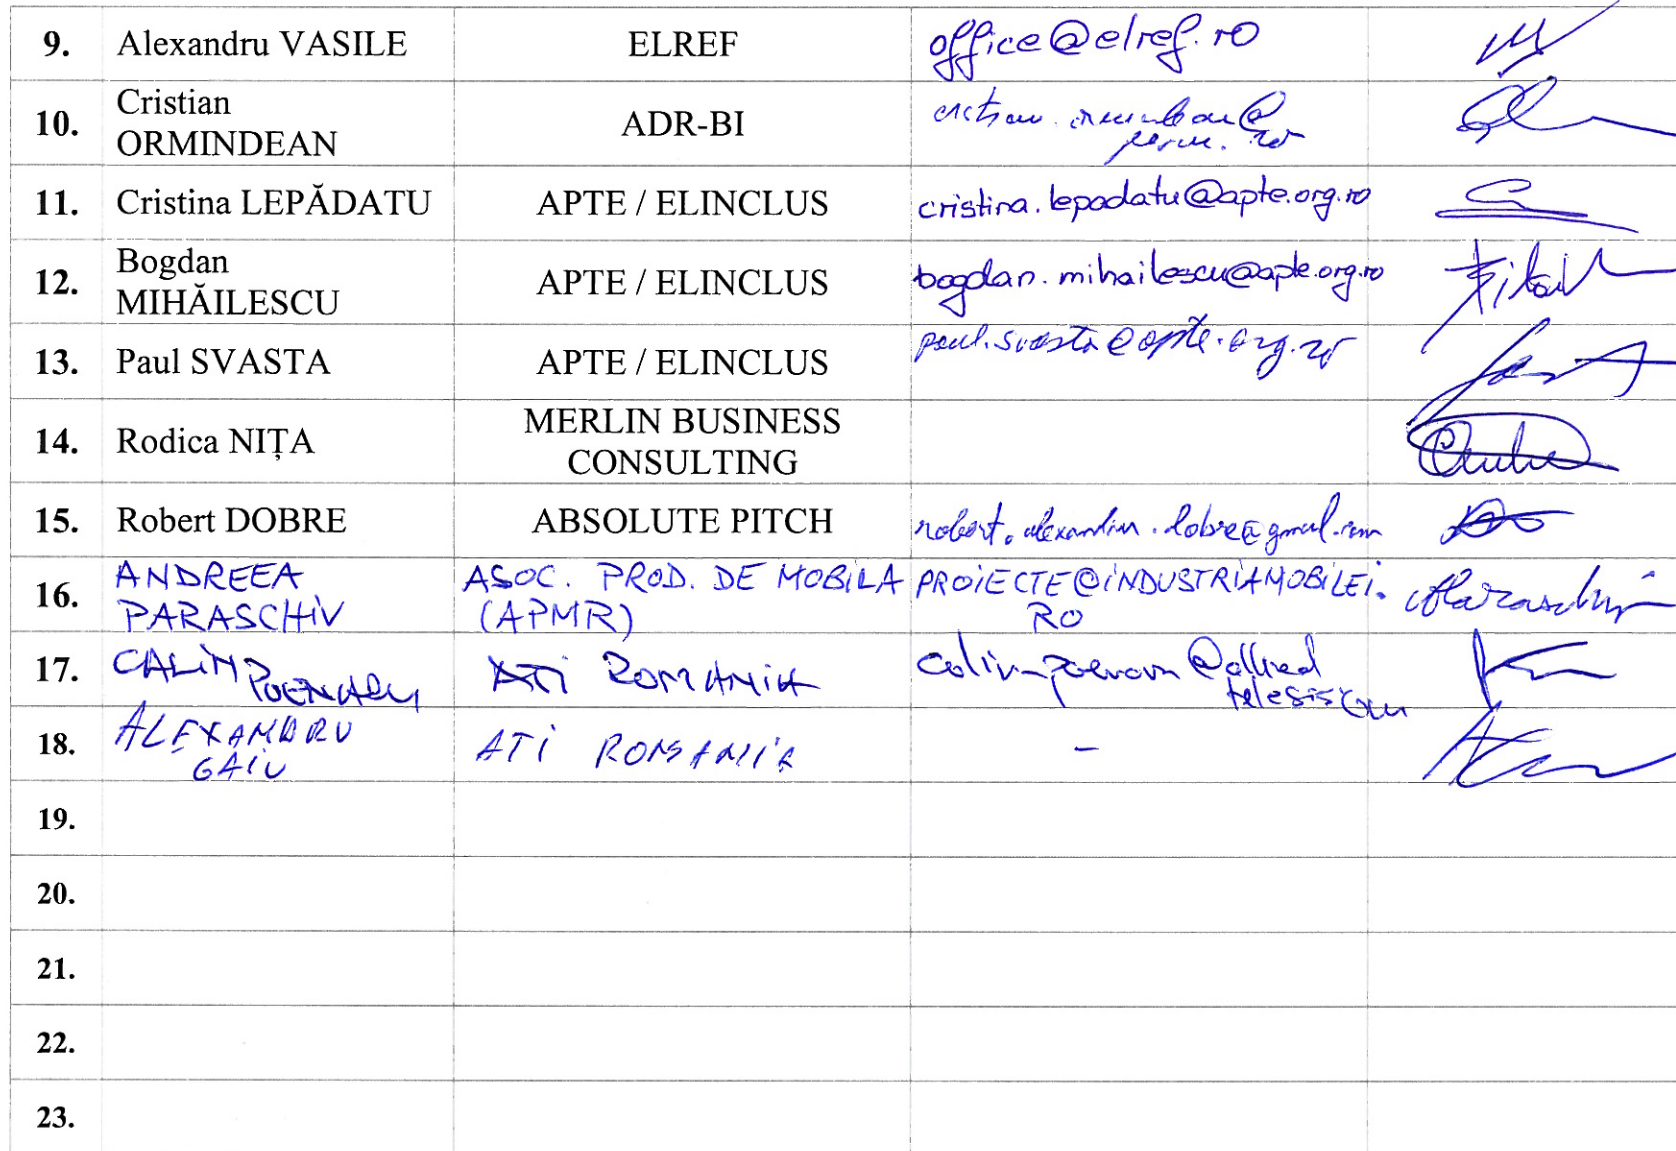 9. Alexandru VASILE ELREF office@elref.ro
10. Cristian
ORMINDEAN ADR-BI
11. Cristina LEPĂDATU APTE / ELINCLUS cristina.lepadatu@apte.org.ro
12. Bogdan
MIHĂILESCU APTE / ELINCLUS bogdan.mihailescu@apte.org.ro
13. Paul SVASTA APTE / ELINCLUS paul.svasta@apte.org.ro
14. Rodica NIȚA MERLIN BUSINESS
CONSULTING
15. Robert DOBRE ABSOLUTE PITCH robert.alexandru.dobre@gmail.com
16. ANDREEA ASOC. PROD. DE MOBILA PROIECTE@INDUSTRIAMOBILEI.
PARASCHIV (APMR) RO
17. CALIN ATI ROMANIA
POENARU
18. ALEXANDRU ATI ROMANIA -
GAIU
19.
20.
21.
22.
23.